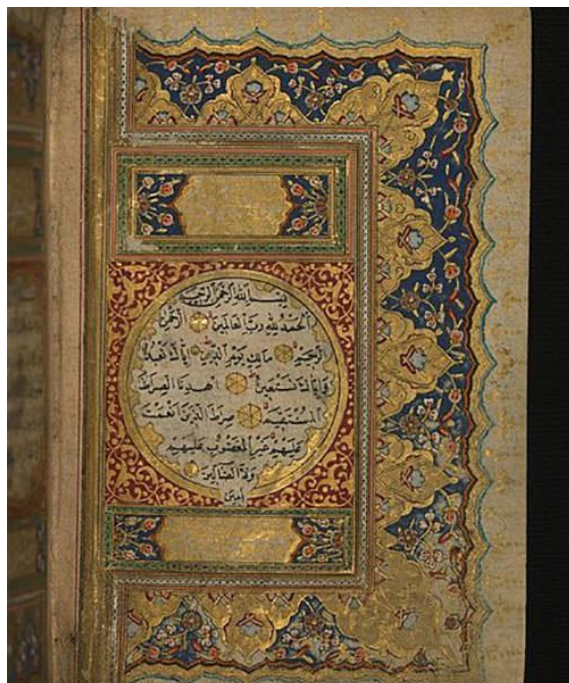 بِسْمِ اللهِ الرَّحْمٰنِ الرَّحِيمِ
اَلْحَمْدُ لِلهِ رَبِّ الْعَالَمِينَ الرَّحْمٰنِ
الرَّحِيمِ مَالِكِ يَوْمِ الدِّينِ اِيَّاكَ نَعْبُدُ
وَاِيَّاكَ نَسْتَعِينُ اِهْدِنَا الصِّرَاطَ
الْمُسْتَقِيمَ صِرَاطَ الَّذِينَ اَنْعَمْتَ
عَلَيْهِمْ غَيْرِ الْمَغْضُوبِ عَلَيْهِمْ
وَلَا الضَّالِّينَ
اٰمِينَ